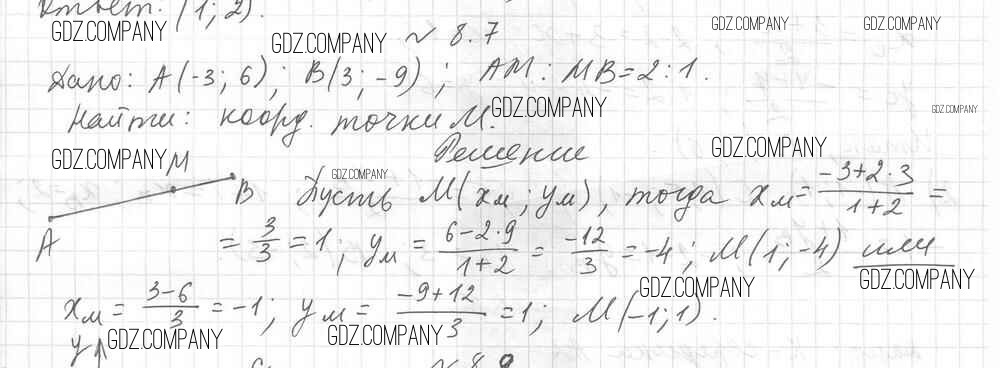 Ответ: (1; 2).
GDZ.COMPANY GDZ.COMPANY GDZ.COMPANY
GDZ.COMPANY
№ 8.7
Дано: A(-3; 6); B(3; -9); AM : MB = 2 : 1.
Найти: коорд. точки M.
GDZ.COMPANY GDZ.COMPANY
Решение
GDZ.COMPANY GDZ.COMPANY
GDZ.COMPANY
A M B
Пусть M(xм; yм), тогда xм = (-3+2·3)/(1+2) =
= 3/3 = 1; yм = (6-2·9)/(1+2) = -12/3 = -4; M(1; -4) или
GDZ.COMPANY GDZ.COMPANY
xм = (3-6)/3 = -1; yм = (-9+12)/3 = 1; M(-1; 1).
y GDZ.COMPANY GDZ.COMPANY